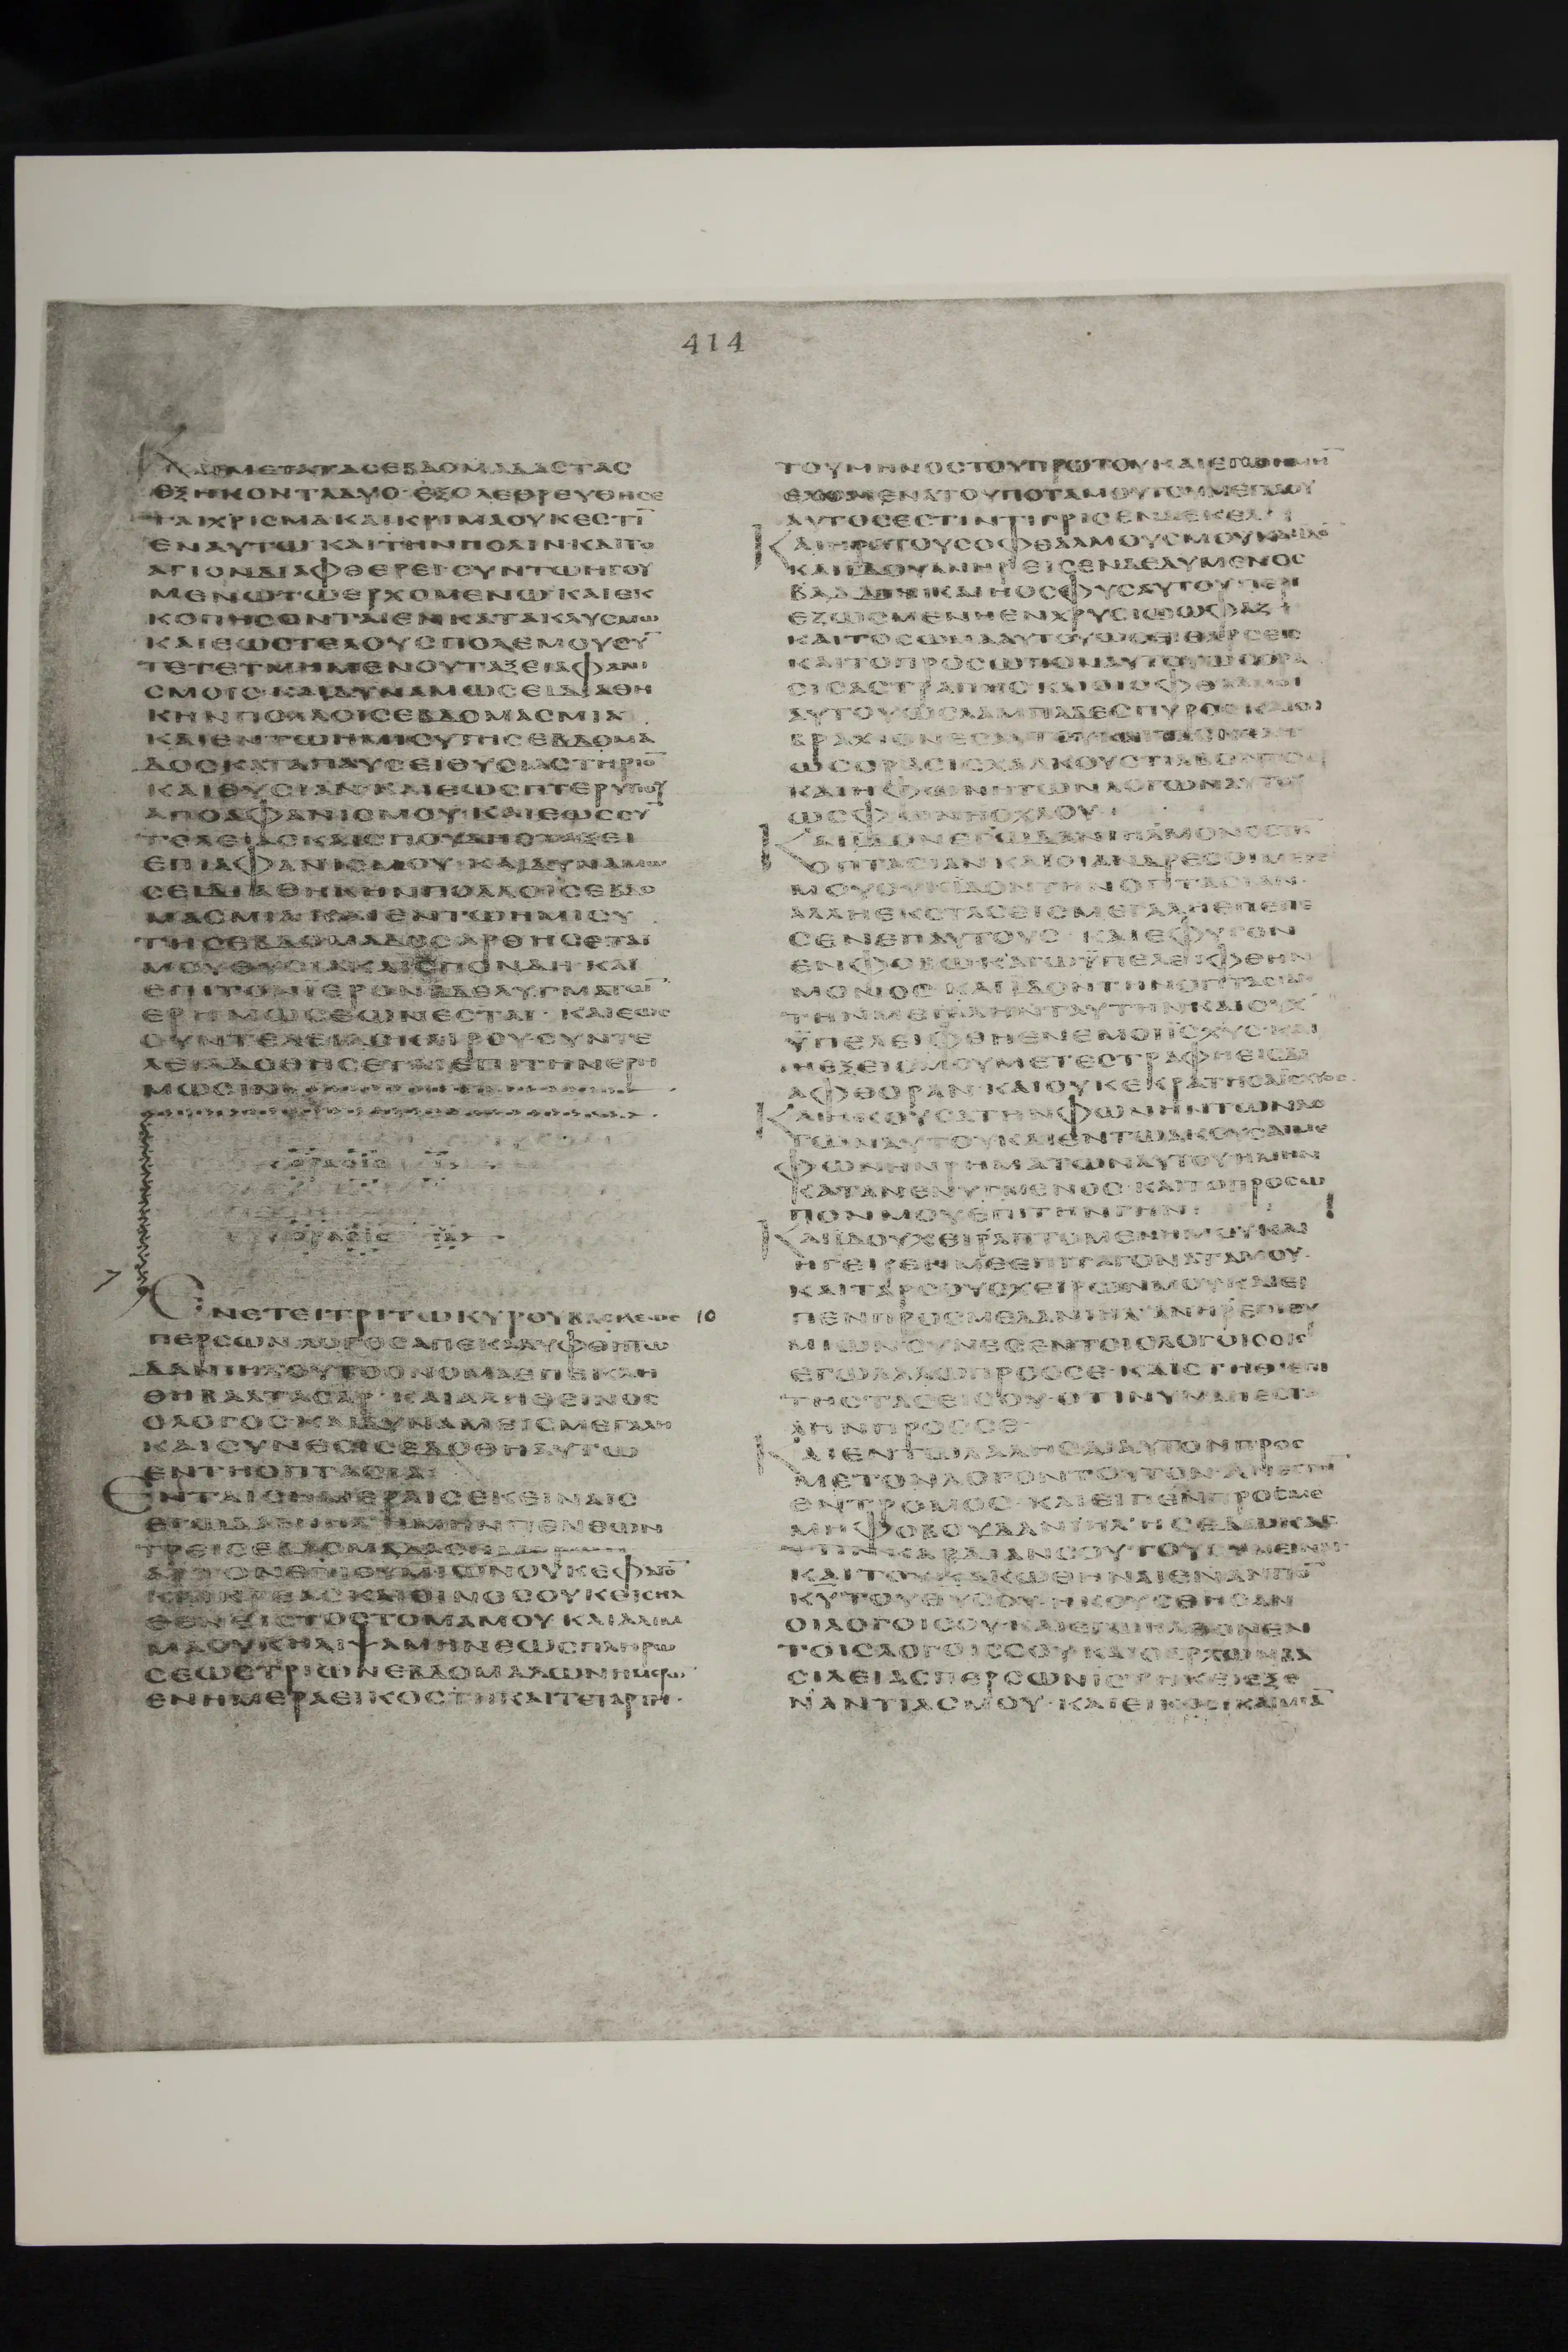 414
ΚΑΙΜΕΤΑΤΑΣΕΒΔΟΜΑΔΑΣΤΑΣ
ΕΞΗΚΟΝΤΑΔΥΟ·ΕΞΟΛΕΘΡΕΥΘΗΣΕ
ΤΑΙΧΡΙΣΜΑΚΑΙΚΡΙΜΑΟΥΚΕΣΤΙ̅
ΕΝΑΥΤΩ·ΚΑΙΤΗΝΠΟΛΙΝ·ΚΑΙΤΟ
ΑΓΙΟΝΔΙΑΦΘΕΡΕΙ·ΣΥΝΤΩΗΓΟΥ
ΜΕΝΩΤΩΕΡΧΟΜΕΝΩ·ΚΑΙΕΚ
ΚΟΠΗΣΟΝΤΑΙΕΝΚΑΤΑΚΛΥΣΜΩ
ΚΑΙΕΩΣΤΕΛΟΥΣΠΟΛΕΜΟΥΣΥ̅
ΤΕΤΕΤΜΗΜΕΝΟΥΤΑΞΕΙΑΦΑΝΙ
ΣΜΟΙΣ·ΚΑΙΔΥΝΑΜΩΣΕΙΔΙΑΘΗ
ΚΗΝΠΟΛΛΟΙΣΕΒΔΟΜΑΣΜΙΑ
ΚΑΙΕΝΤΩΗΜΙΣΥΤΗΣΕΒΔΟΜΑ
ΔΟΣΚΑΤΑΠΑΥΣΕΙΘΥΣΙΑΣΤΗΡΙΟ̅
ΚΑΙΘΥΣΙΑΝ·ΚΑΙΕΩΣΠΤΕΡΥΓΙΟΥ
ΑΠΟΑΦΑΝΙΣΜΟΥ·ΚΑΙΕΩΣΣΥ̅
ΤΕΛΕΙΑΣΚΑΙΣΠΟΥΔΗΣΤΑΞΕΙ
ΕΠΙΑΦΑΝΙΣΜΟΥ·ΚΑΙΔΥΝΑΜΩ
ΣΕΙΔΙΑΘΗΚΗΝΠΟΛΛΟΙΣΕΒΔΟ
ΜΑΣΜΙΑ·ΚΑΙΕΝΤΩΗΜΙΣΥ
ΤΗΣΕΒΔΟΜΑΔΟΣΑΡΘΗΣΕΤΑΙ
ΜΟΥΘΥΣΙΑΚΑΙΣΠΟΝΔΗ·ΚΑΙ
ΕΠΙΤΟΙΕΡΟΝΒΔΕΛΥΓΜΑΤΩ̅
ΕΡΗΜΩΣΕΩΝΕΣΤΑΙ·ΚΑΙΕΩΣ
ΣΥΝΤΕΛΕΙΑΣΚΑΙΡΟΥ·ΣΥΝΤΕ
ΛΕΙΑΔΟΘΗΣΕΤΑΙΕΠΙΤΗΝΕΡΗ
ΜΩΣΙΝ
ΕΝΕΤΕΙΤΡΙΤΩΚΥΡΟΥΒΑΣΙΛΕΩΣ 10
ΠΕΡΣΩΝΛΟΓΟΣΑΠΕΚΑΛΥΦΘΗΤΩ
ΔΑΝΙΗΛΟΥΤΟΟΝΟΜΑΕΠΕΚΛΗ
ΘΗΒΑΛΤΑΣΑΡ·ΚΑΙΑΛΗΘΕΙΝΟΣ
ΟΛΟΓΟΣ·ΚΑΙΔΥΝΑΜΕΙΣΜΕΓΑΛΗ
ΚΑΙΣΥΝΕΣΙΣΕΔΟΘΗΑΥΤΩ
ΕΝΤΗΟΠΤΑΣΙΑ:
ΕΝΤΑΙΣΗΜΕΡΑΙΣΕΚΕΙΝΑΙΣ
ΕΓΩΔΑΝΙΗΛΗΜΗΝΠΕΝΘΩΝ
ΤΡΕΙΣΕΒΔΟΜΑΔΑΣ
ΑΡΤΟΝΕΠΙΘΥΜΙΩΝΟΥΚΕΦΑΓΟ̅
ΚΑΙΚΡΕΑΣΚΑΙΟΙΝΟΣΟΥΚΕΙΣΗΛ
ΘΕΝΕΙΣΤΟΣΤΟΜΑΜΟΥΚΑΙΑΛΙΜ
ΜΑΟΥΚΗΛΙΨΑΜΗΝΕΩΣΠΛΗΡΩ
ΣΕΩΣΤΡΙΩΝΕΒΔΟΜΑΔΩΝΗΜΕΡΩ̅
ΕΝΗΜΕΡΑΕΙΚΟΣΤΗΚΑΙΤΕΤΑΡΤΗ·
ΤΟΥΜΗΝΟΣΤΟΥΠΡΩΤΟΥΚΑΙΕΓΩΗΜΗ̅
ΕΧΟΜΕΝΑΤΟΥΠΟΤΑΜΟΥΤΟΥΜΕΓΑΛΟΥ
ΑΥΤΟΣΕΣΤΙΝΤΙΓΡΙΣΕΝΔΕΚΕΛ
ΚΑΙΗΡΑΤΟΥΣΟΦΘΑΛΜΟΥΣΜΟΥΚΑΙΙΔΟ̅
ΚΑΙΙΔΟΥΑΝΗΡΕΙΣΕΝΔΕΔΥΜΕΝΟΣ
ΒΑΔΔΙΝ·ΚΑΙΗΟΣΦΥΣΑΥΤΟΥΠΕΡΙ
ΕΖΩΣΜΕΝΗΕΝΧΡΥΣΙΩΩΦΑΖ
ΚΑΙΤΟΣΩΜΑΑΥΤΟΥΩΣΕΙΘΑΡΣΕΙΣ
ΚΑΙΤΟΠΡΟΣΩΠΟΝΑΥΤΟΥΩΣΟΡΑ
ΣΙΣΑΣΤΡΑΠΗΣ·ΚΑΙΟΙΟΦΘΑΛΜΟΙ
ΑΥΤΟΥΩΣΛΑΜΠΑΔΕΣΠΥΡΟΣ·ΚΑΙΟΙ
ΒΡΑΧΙΟΝΕΣΑΥΤΟΥΚΑΙΤΑΣΚΕΛΗ
ΩΣΟΡΑΣΙΣΧΑΛΚΟΥΣΤΙΛΒΟΝΤΟΣ
ΚΑΙΗΦΩΝΗΤΩΝΛΟΓΩΝΑΥΤΟΥ
ΩΣΦΩΝΗΟΧΛΟΥ·
ΚΑΙΙΔΟΝΕΓΩΔΑΝΙΗΛΜΟΝΟΣΤΗ̅
ΟΠΤΑΣΙΑΝ·ΚΑΙΟΙΑΝΔΡΕΣΟΙΜΕΤ
ΜΟΥΟΥΚΙΔΟΝΤΗΝΟΠΤΑΣΙΑΝ·
ΑΛΛΗΕΚΣΤΑΣΕΙΣΜΕΓΑΛΗΕΠΕΠΕ
ΣΕΝΕΠΑΥΤΟΥΣ·ΚΑΙΕΦΥΓΟΝ
ΕΝΦΟΒΩ·ΚΑΓΩΫΠΕΛΕΙΦΘΗΝ
ΜΟΝΟΣ·ΚΑΙΙΔΟΝΤΗΝΟΠΤΑΣΙΑΝ
ΤΗΝΜΕΓΑΛΗΝΤΑΥΤΗΝΚΑΙΟΥΧ
ΫΠΕΛΕΙΦΘΗΕΝΕΜΟΙΪΣΧΥΣ·ΚΑΙ
ΗΔΟΞΑΜΟΥΜΕΤΕΣΤΡΑΦΗΕΙΣΔΙ
ΑΦΘΟΡΑΝ·ΚΑΙΟΥΚΕΚΡΑΤΗΣΑΪΣΧΥΟΣ
ΚΑΙΗΚΟΥΣΑΤΗΝΦΩΝΗΝΤΩΝΛΟ
ΓΩΝΑΥΤΟΥΚΑΙΕΝΤΩΑΚΟΥΣΑΙΜΕ
ΦΩΝΗΝΡΗΜΑΤΩΝΑΥΤΟΥΗΜΗΝ
ΚΑΤΑΝΕΝΥΓΜΕΝΟΣ·ΚΑΙΤΟΠΡΟΣΩ
ΠΟΝΜΟΥΕΠΙΤΗΝΓΗΝ:
ΚΑΙΙΔΟΥΧΕΙΡΑΠΤΟΜΕΝΗΜΟΥΚΑΙ
ΗΓΕΙΡΕΝΜΕΕΠΙΤΑΓΟΝΑΤΑΜΟΥ·
ΚΑΙΤΑΡΣΟΥΣΧΕΙΡΩΝΜΟΥΚΑΙΕΙ
ΠΕΝΠΡΟΣΜΕΔΑΝΙΗΛΑΝΗΡΕΠΙΘΥ
ΜΙΩΝΣΥΝΕΣΕΝΤΟΙΣΛΟΓΟΙΣΟΙΣ
ΕΓΩΛΑΛΩΠΡΟΣΣΕ·ΚΑΙΣΤΗΘΙΕΠΙ
ΤΗΣΤΑΣΕΙΣΟΥ·ΟΤΙΝΥΝΑΠΕΣΤΑ
ΛΗΝΠΡΟΣΣΕ·
ΚΑΙΕΝΤΩΛΑΛΗΣΑΙΑΥΤΟΝΠΡΟΣ
ΜΕΤΟΝΛΟΓΟΝΤΟΥΤΟΝ·ΑΝΕΣΤΗ̅
ΕΝΤΡΟΜΟΣ·ΚΑΙΕΙΠΕΝΠΡΟΣΜΕ
ΜΗΦΟΒΟΥΔΑΝΙΗΛ·
ΤΗΝΚΑΡΔΙΑΝΣΟΥ·ΤΟΥΣΥΝΕΙΝΑΙ·
ΚΑΙΤΟΥΚΑΚΩΘΗΝΑΙΕΝΑΝΤΙΟ̅
Κ̅Υ̅ΤΟΥΘ̅Υ̅ΣΟΥ·ΗΚΟΥΣΘΗΣΑΝ
ΟΙΛΟΓΟΙΣΟΥ·ΚΑΙΕΓΩΗΛΘΟΝΕΝ
ΤΟΙΣΛΟΓΟΙΣΣΟΥ·ΚΑΙΟΑΡΧΩΝΒΑ
ΣΙΛΕΙΑΣΠΕΡΣΩΝΙΣΤΗΚΕΙΕΞΕ
ΝΑΝΤΙΑΣΜΟΥ·ΚΑΙΕΙΚΟΣΙΚΑΙΜΙΑ̅